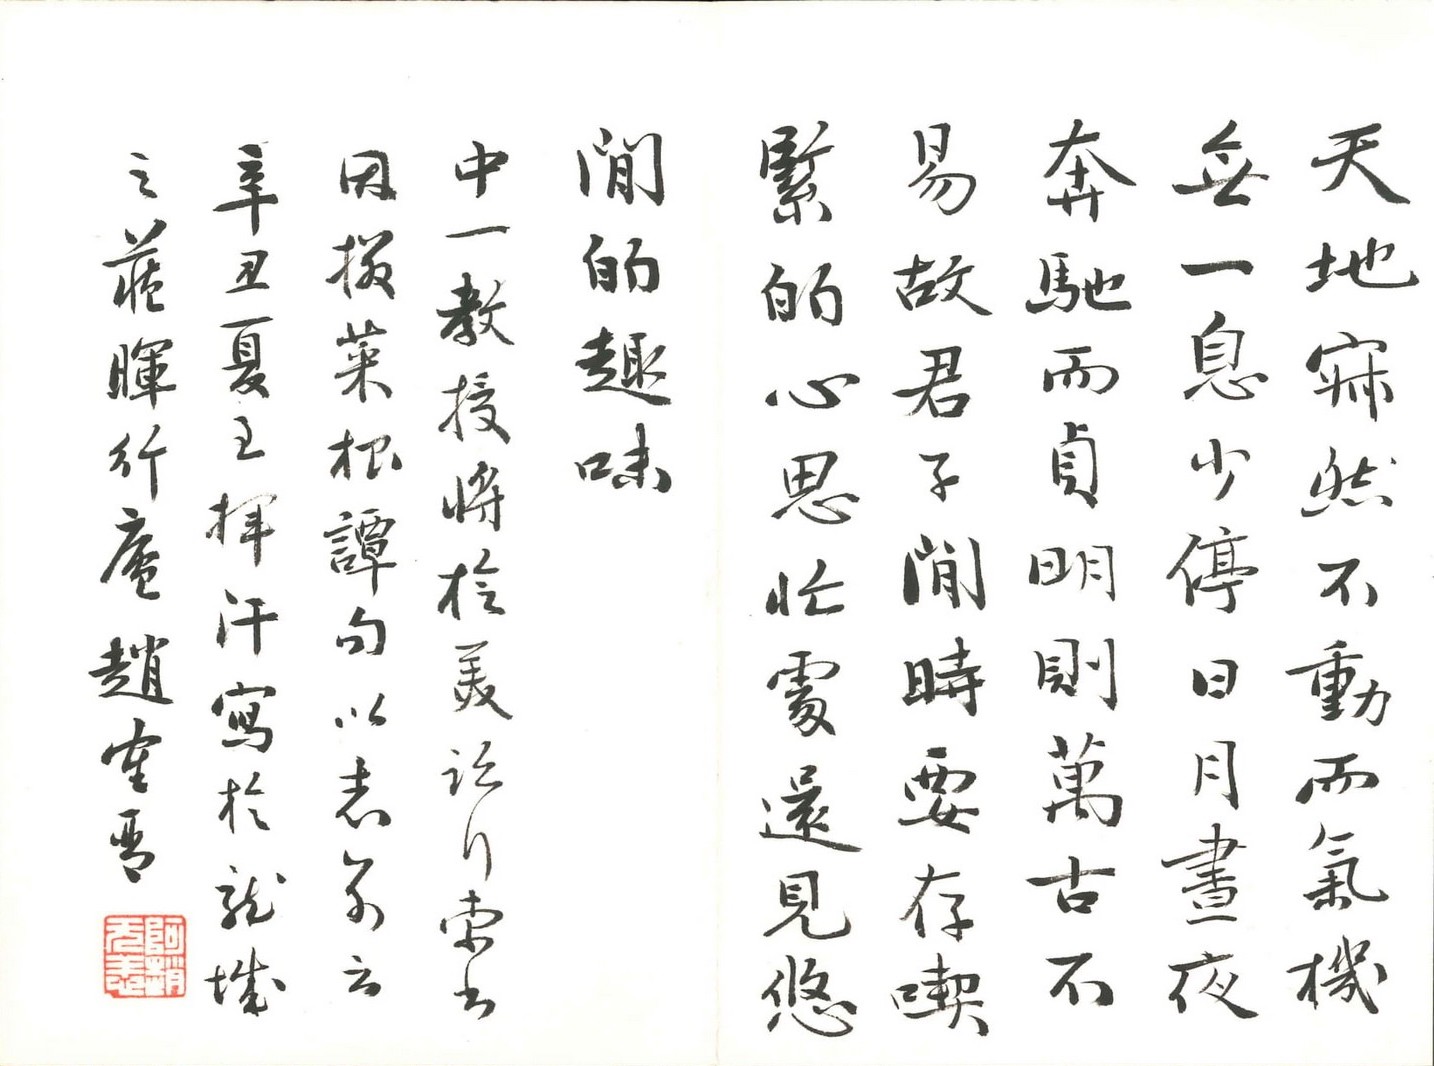 天地寂然不動而氣機
無一息少停日月晝夜
奔馳而貞明則萬古不
易故君子閒時要存喫
緊的心思忙處還見悠
閒的趣味
中一教授將於美誼行索書
因掇菜根譚句以志勿云
辛丑夏王揮汗寫於龍城
之蘐暉行庵 趙